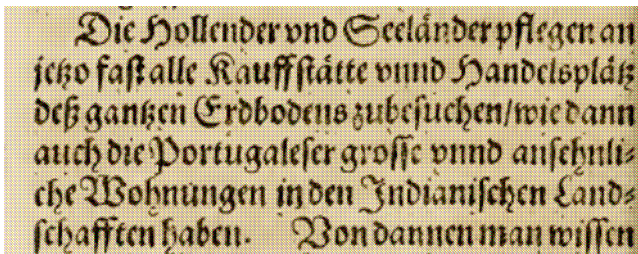 Die Hollender vnd Seeländer pflegen an
jetzo fast alle Kauffstätte vnnd Handelsplätz
deß gantzen Erdbodens zubesuchen/wie dann
auch die Portugaleser grosse vnnd ansehnli⸗
che Wohnungen in den Indianischen Land⸗
schafften haben. Von dannen man wissen